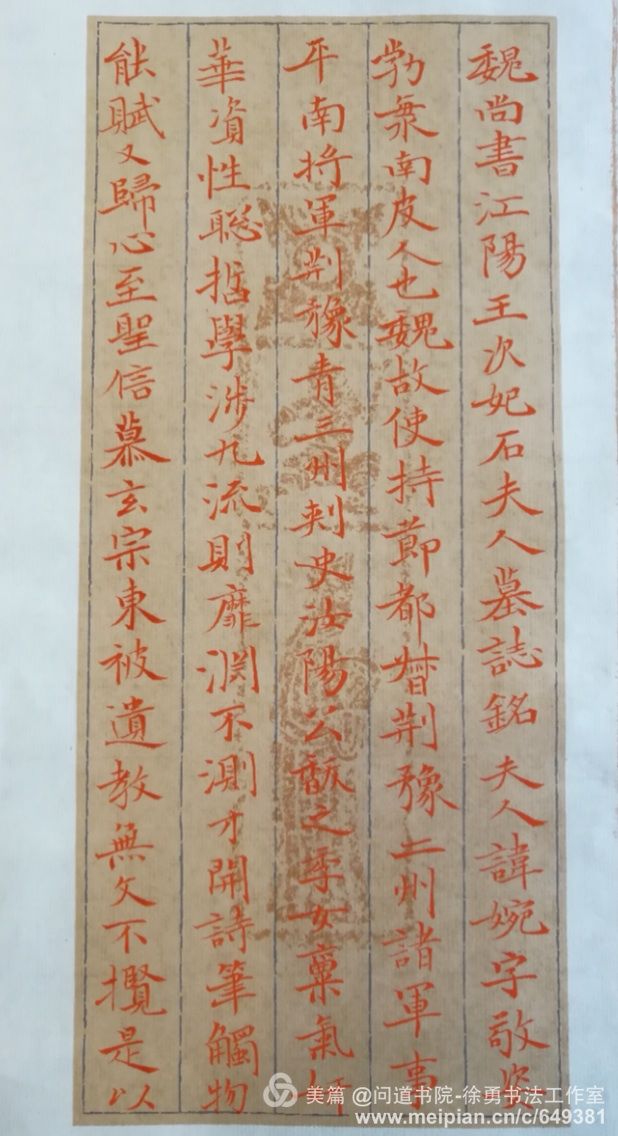 魏尚書江陽王次妃石夫人墓誌銘夫人諱婉字敬姿
勃海南皮人也魏故使持節都督荆豫二州諸軍事
平南將軍荆豫青三州刺史汝陽公馛之季女稟氣妍
華資性聰哲學涉九流則靡淵不測才開詩筆觸物
能賦又歸心至聖信慕玄宗東被遺教無文不攬是以
美篇 @问道书院-徐勇书法工作室
www.meipian.cn/c/649381